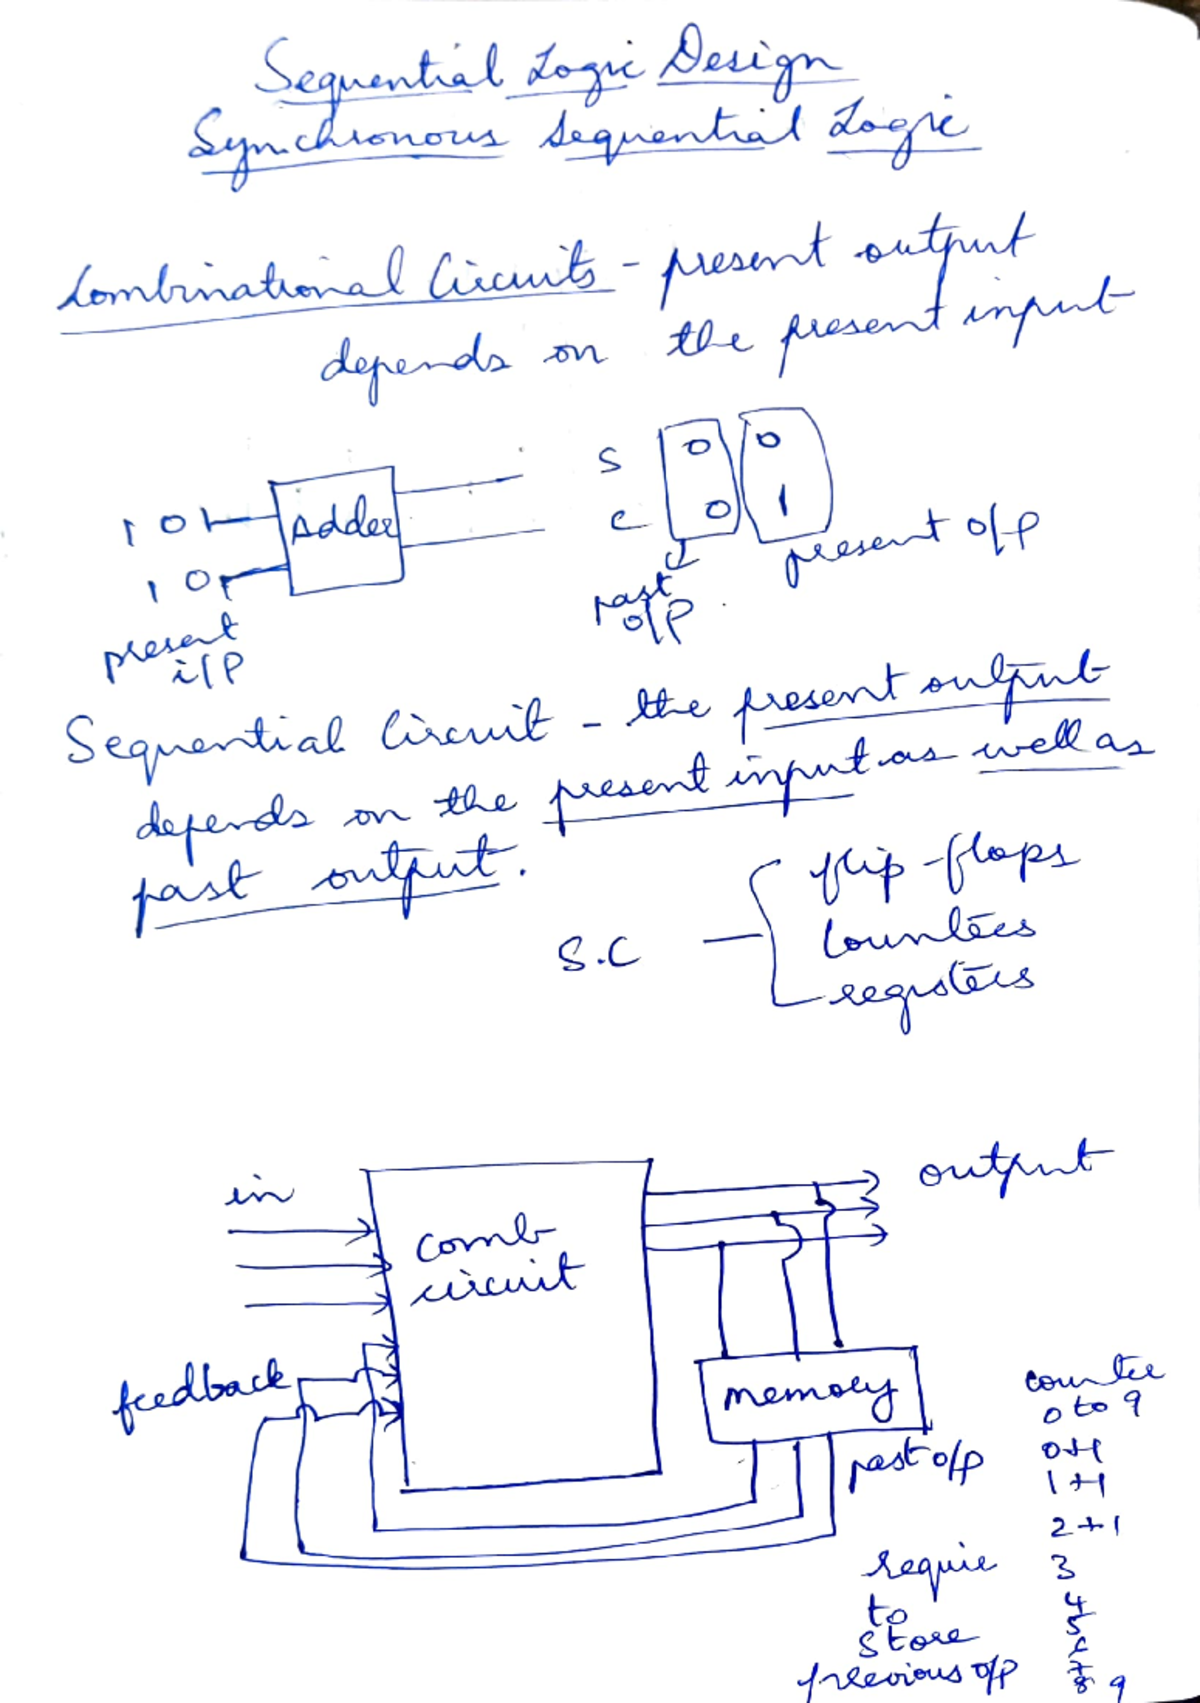 Sequential Logic Design
Synchronous Sequential Logic
Combinational Circuits - present output
depends on the present input
1 0 1
1 0 1
present
i/p
Adder
S 0 0
C 0 1
past
o/p
present o/p
Sequential Circuit - the present output
depends on the present input as well as
past output.
S.C
flip-flops
Counters
registers
in
comb
circuit
output
feedback
memory
past o/p
counter
0 to 9
0+1
1+1
2+1
3
4
5
6
7
8 9
require
to
store
previous o/p